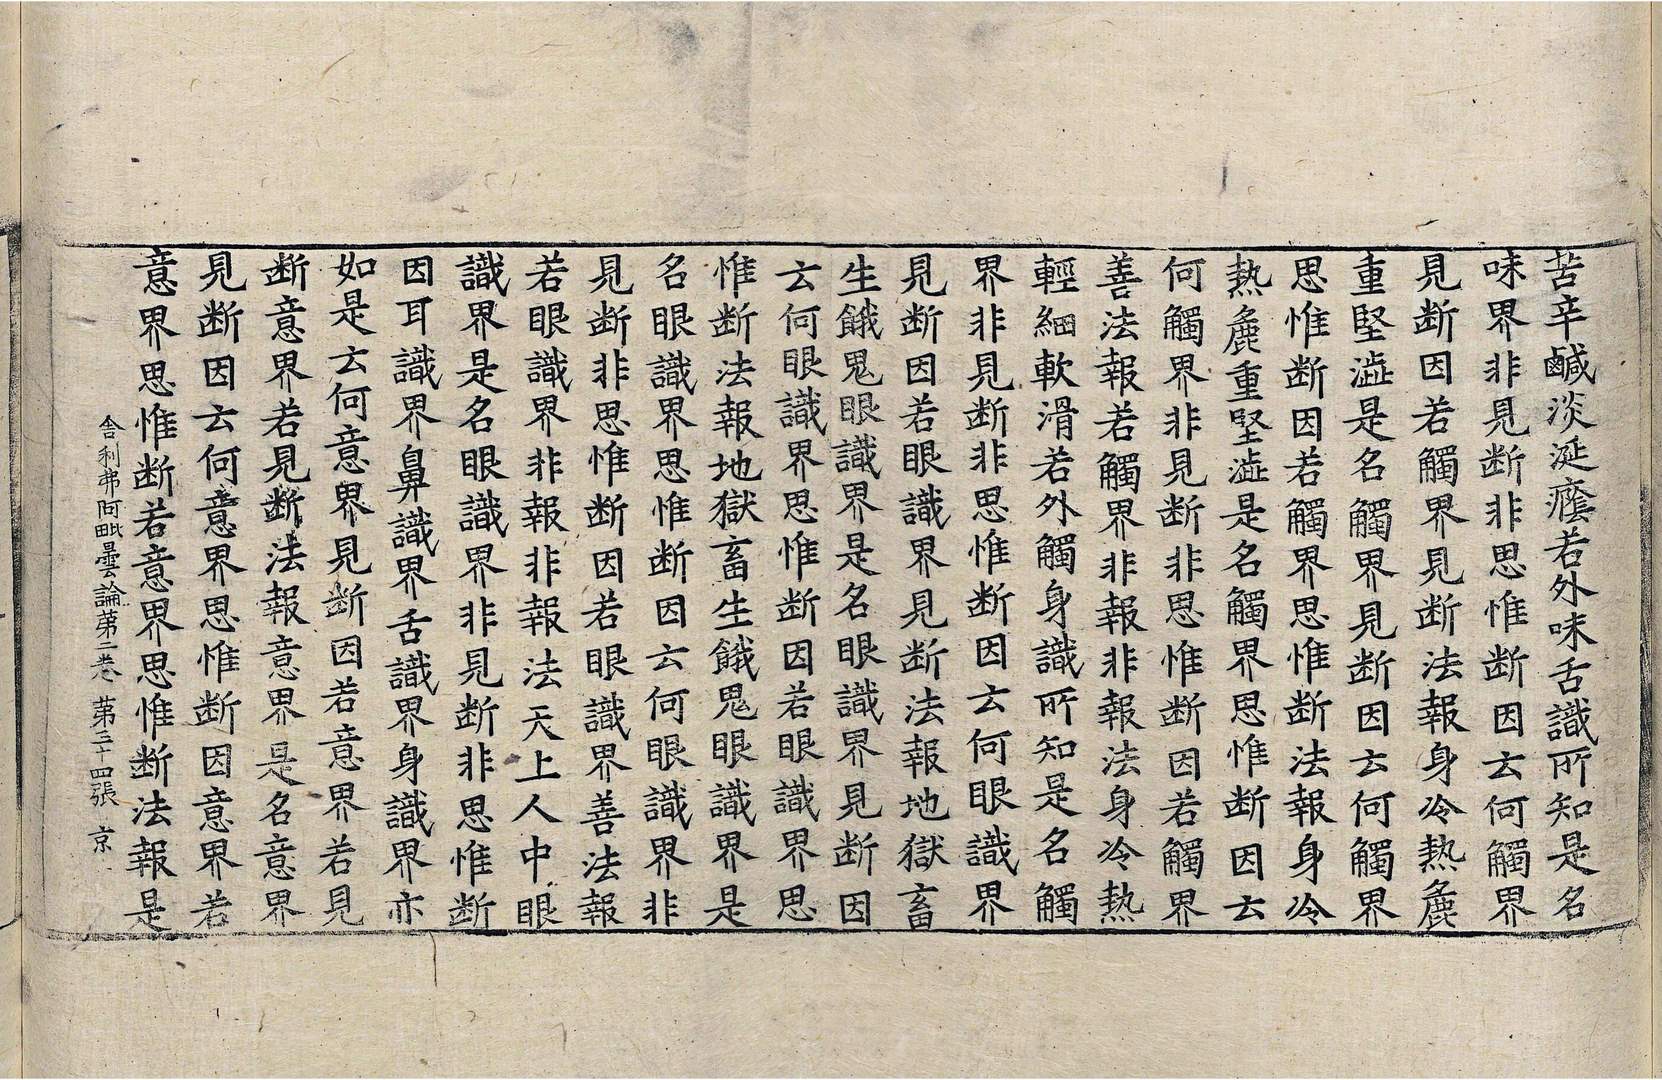 苦辛鹹淡涎癊若外味舌識所知是名
味界非見断非思惟断因云何觸界
見断因若觸界見断法報身冷熱麁
重堅澁是名觸界見断因云何觸界
思惟断因若觸界思惟断法報身冷
熱麁重堅澁是名觸界思惟断因云
何觸界非見断非思惟断因若觸界
善法報若觸界非報非報法身冷熱
輕細軟滑若外觸身識所知是名觸
界非見断非思惟断因云何眼識界
見断因若眼識界見断法報地獄畜
生餓鬼眼識界是名眼識界見断因
云何眼識界思惟断因若眼識界思
惟断法報地獄畜生餓鬼眼識界是
名眼識界思惟断因云何眼識界非
見断非思惟断因若眼識界善法報
若眼識界非報非報法天上人中眼
識界是名眼識界非見断非思惟断
因耳識界鼻識界舌識界身識界亦
如是云何意界見断因若意界若見
断意界若見断法報意界是名意界
見断因云何意界思惟断因意界若
意界思惟断若意界思惟断法報是
舍利弗阿毗曇論第二卷 第三十四張 京